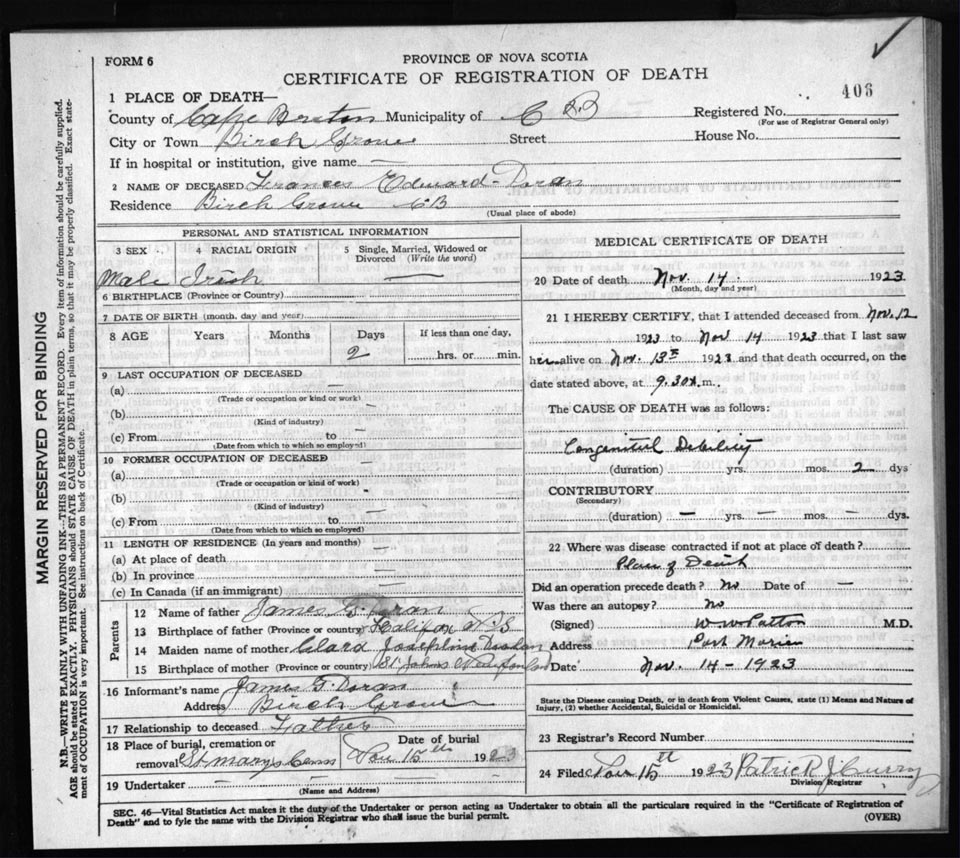 FORM 6
PROVINCE OF NOVA SCOTIA
CERTIFICATE OF REGISTRATION OF DEATH
406
1 PLACE OF DEATH—
County of Cape Breton Municipality of C B
Registered No.
(For use of Registrar General only)
City or Town Birch Grove Street House No.
If in hospital or institution, give name —
2 NAME OF DECEASED Frances Edward Doran
Residence Birch Grove CB
(Usual place of abode)
PERSONAL AND STATISTICAL INFORMATION
3 SEX 4 RACIAL ORIGIN 5 Single, Married, Widowed or Divorced (Write the word)
Male Irish —
6 BIRTHPLACE (Province or Country)
7 DATE OF BIRTH (month, day and year)
8 AGE Years Months Days If less than one day,
2 hrs. or min.
9 LAST OCCUPATION OF DECEASED
(a) —
(Trade or occupation or kind or work)
(b) —
(Kind of industry)
(c) From to —
(Date from which to which so employed)
10 FORMER OCCUPATION OF DECEASED —
(a)
(Trade or occupation or kind of work)
(b) —
(Kind of industry)
(c) From to —
(Date from which to which so employed)
11 LENGTH OF RESIDENCE (In years and months)
(a) At place of death —
(b) In province —
(c) In Canada (if an immigrant) —
Parents
12 Name of father James G. Doran
13 Birthplace of father (Province or country) Halifax N.S
14 Maiden name of mother Clara Josephine
15 Birthplace of mother (Province or country) St. Johns Newfoundland
16 Informant's name James G. Doran
Address Birch Grove
17 Relationship to deceased Father
18 Place of burial, cremation or removal St. Marys Date of burial Nov 15th 1923
19 Undertaker —
(Name and Address)
MEDICAL CERTIFICATE OF DEATH
20 Date of death Nov. 14. 1923
(Month, day and year)
21 I HEREBY CERTIFY, that I attended deceased from Nov. 12
1923 to Nov 14 1923 that I last saw
alive on Nov. 13th 1923 and that death occurred, on the
date stated above, at 9.30 m.
The CAUSE OF DEATH was as follows:
Congenital Debility
(duration) yrs. mos. 2 dys
CONTRIBUTORY
(Secondary)
(duration) — yrs. — mos. — dys.
22 Where was disease contracted if not at place of death?
Place of Death
Did an operation precede death? No Date of —
Was there an autopsy? No
(Signed) W W Patton M.D.
Address Port Morien
Date Nov. 14 - 1923
State the Disease causing Death, or in death from Violent Causes, state (1) Means and Nature of Injury, (2) whether Accidental, Suicidal or Homicidal.
23 Registrar's Record Number
24 Filed Nov 15th 1923 Patrick J Curry
Division Registrar
SEC. 46—Vital Statistics Act makes it the duty of the Undertaker or person acting as Undertaker to obtain all the particulars required in the "Certificate of Registration of
Death" and to fyle the same with the Division Registrar who shall issue the burial permit.
(OVER)
MARGIN RESERVED FOR BINDING
N.B.—WRITE PLAINLY WITH UNFADING INK—THIS IS A PERMANENT RECORD. Every item of information should be carefully supplied.
AGE should be stated EXACTLY. PHYSICIANS should STATE CAUSE OF DEATH in plain terms, so that it may be properly classified. Exact state-
ment of OCCUPATION is very important. See instructions on back of Certificate.